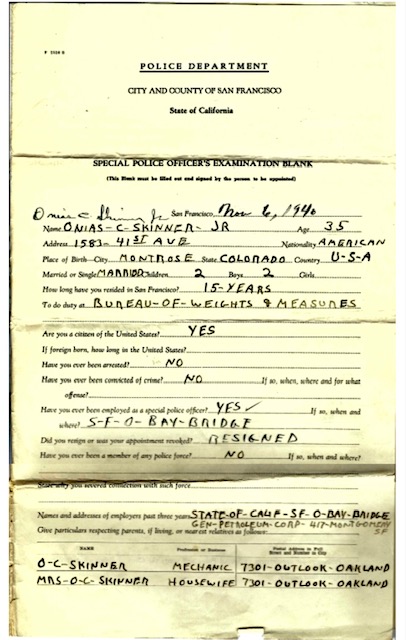 POLICE DEPARTMENT
CITY AND COUNTY OF SAN FRANCISCO
State of California
SPECIAL POLICE OFFICER'S EXAMINATION BLANK
(This Blank must be filled out and signed by the person to be appointed)
Onias C Skinner Jr San Francisco, Nov 6, 1940
Name ONIAS-C-SKINNER-JR Age 35
Address 1583-41ST AVE Nationality AMERICAN
Place of Birth—City MONTROSE State COLORADO Country U-S-A
Married or Single MARRIED Children 2 Boys 2 Girls
How long have you resided in San Francisco? 15-YEARS
To do duty at BUREAU-OF-WEIGHTS & MEASURES
Are you a citizen of the United States? YES
If foreign born, how long in the United States?
Have you ever been arrested? NO
Have you ever been convicted of crime? NO If so, when, where and for what
offense?
Have you ever been employed as a special police officer? YES ✓ If so, when and
where? S-F-O-BAY-BRIDGE
Did you resign or was your appointment revoked? RESIGNED
Have you ever been a member of any police force? NO If so, when and where?
State why you severed connection with such force
Names and addresses of employers past three years STATE-OF-CALIF-SF-O-BAY-BRIDGE
GEN-PETROLEUM-CORP-417-MONTGOMERY
SF
Give particulars respecting parents, if living, or nearest relatives as follows:
NAME Profession or Business Postal Address in Full
Street and Number in City
O-C-SKINNER MECHANIC 7301-OUTLOOK-OAKLAND
MRS-O-C-SKINNER HOUSEWIFE 7301-OUTLOOK-OAKLAND